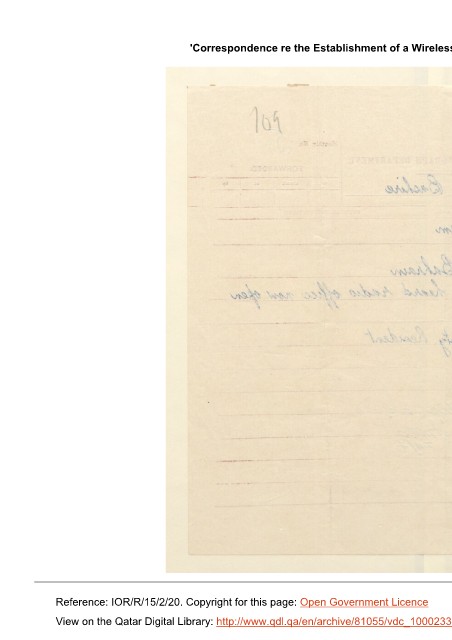 'Correspondence re the Establishment of a Wireless
109
FORWARDED
Bushire
Bahrain
heard radio office now open
Resident
Reference: IOR/R/15/2/20. Copyright for this page: Open Government Licence
View on the Qatar Digital Library: http://www.qdl.qa/en/archive/81055/vdc_1000233